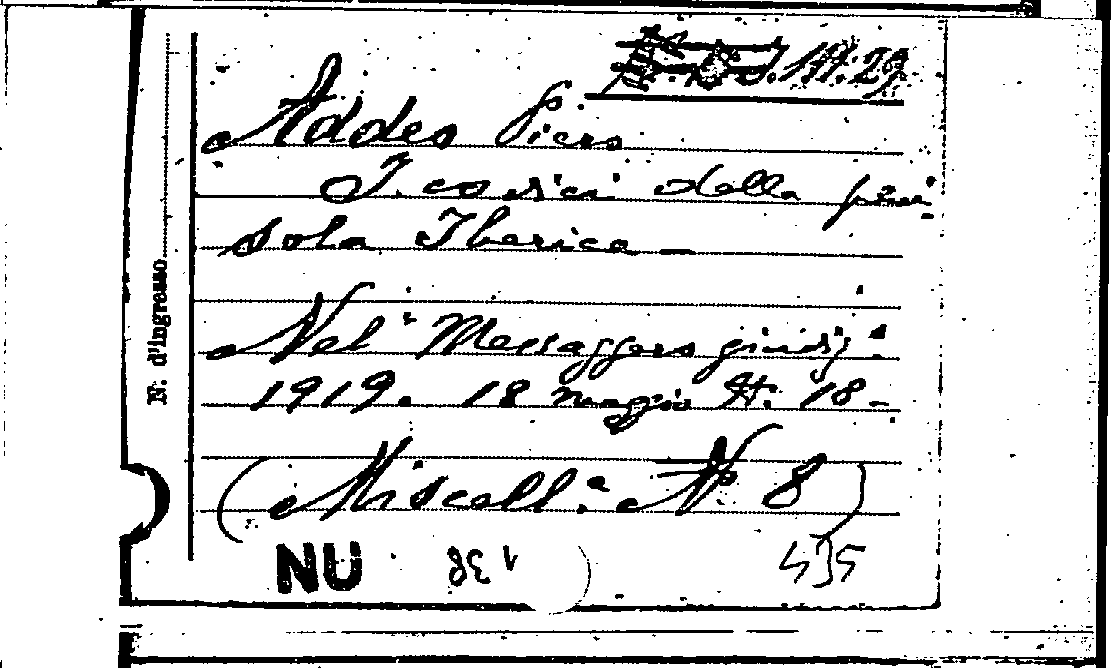 J. 144: 29.
Addeo Piero
I. codici della peni
sola Iberica —
Nel: Messaggero giudiz:
1919. 18 maggio N. 18 -
(Miscell:a N. 8)
NU
435
N. d'ingresso